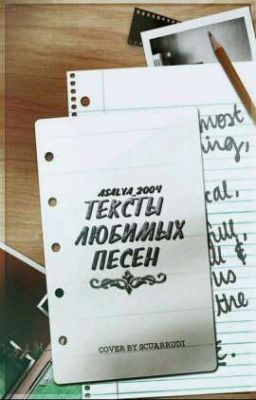 ASALYA_2004
ТЕКСТЫ
ЛЮБИМЫХ
ПЕСЕН
COVER BY SCUARRUDI
most
ing,
cal,
us
the